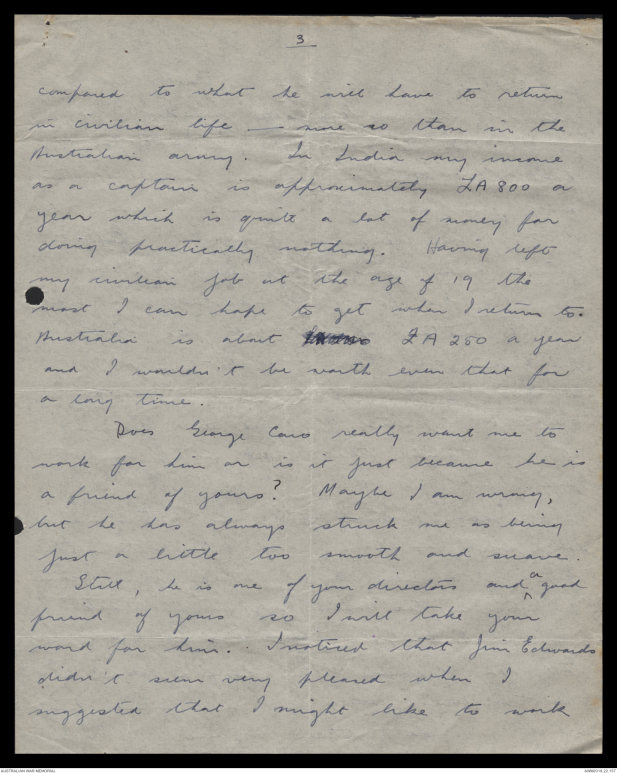 3
compared to what he will have to return
in civilian life — more so than in the
Australian army. In India my income
as a captain is approximately £A 800 a
year which is quite a lot of money for
doing practically nothing. Having left
my civilian job at the age of 19 the
most I can hope to get when I return to
Australia is about £A 250 a year
and I wouldn't be worth even that for
a long time.
Does George Caro really want me to
work for him or is it just because he is
a friend of yours? Maybe I am wrong,
but he has always struck me as being
just a little too smooth and suave.
Still, he is one of your directors and a good
friend of yours so I will take your
word for him. I noticed that Jim Edwards
didn't seem very pleased when I
suggested that I might like to work
AUSTRALIAN WAR MEMORIAL